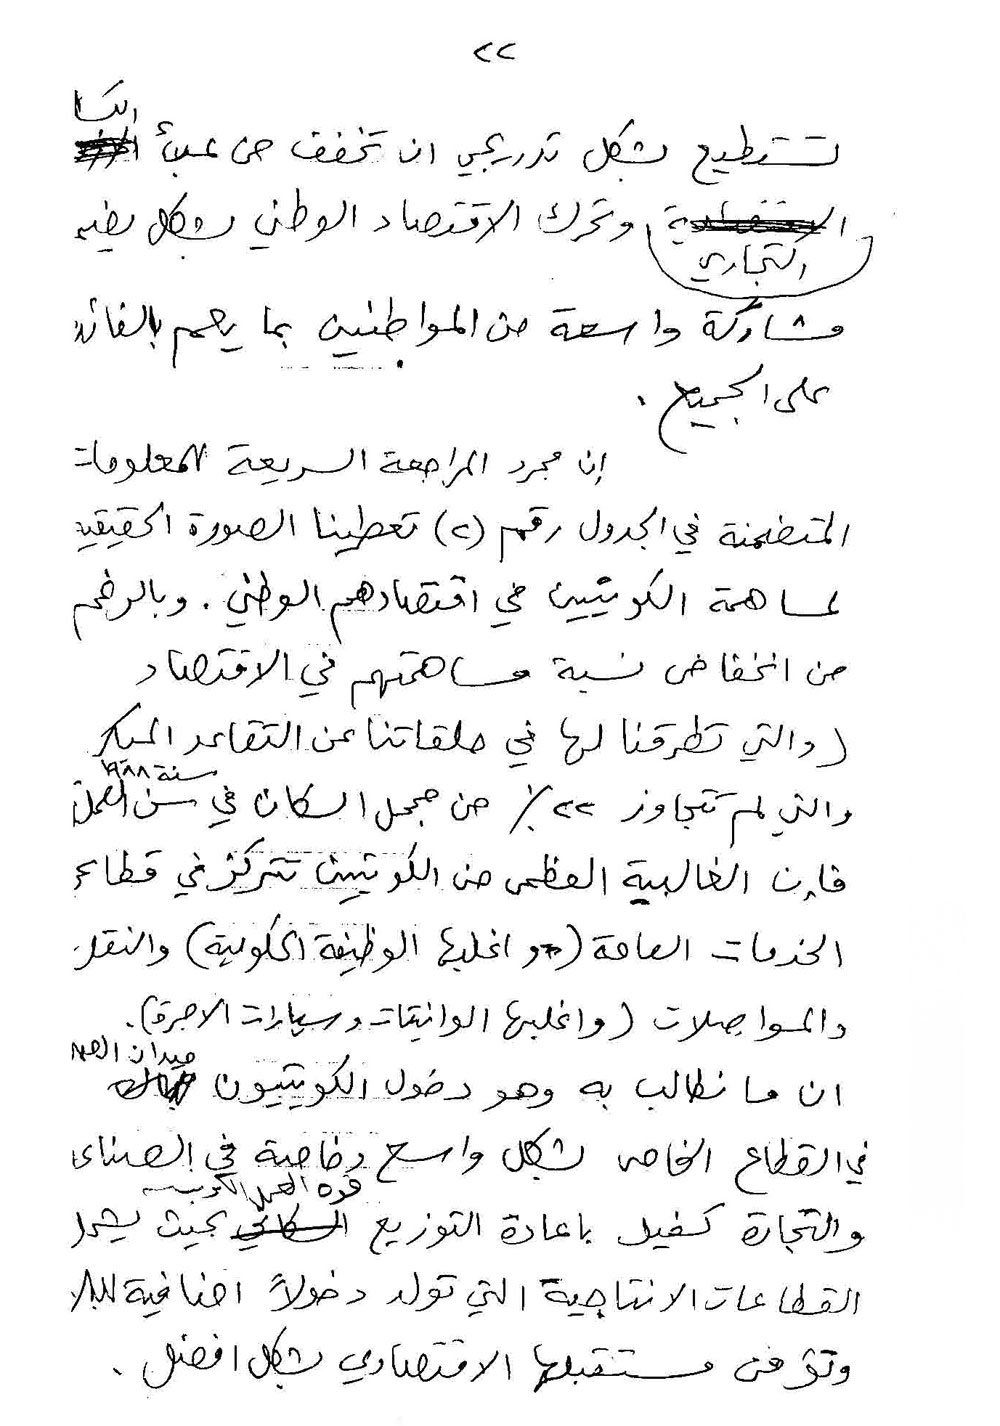 ٢٢
تستطيع بشكل تدريجي ان تخفف من عبأ
التجاري وتحرك الاقتصاد الوطني بشكل
مشاركة واسعة من المواطنيين بما يعم بالفائدة
على الجميع .
إن مجرد المراجعة السريعة للمعلومات
المتضمنة في الجدول رقم (٢) تعطينا الصورة الحقيقية
لمساهمة الكويتيين في اقتصادهم الوطني . وبالرغم
من انخفاض نسبة مساهمتهم في الاقتصاد
( والتي تطرقنا لها في حلقاتنا عن التقاعد المبكر
سنة ١٩٨٨
والتي لم تتجاوز ٢٢٪ من مجمل السكان في سن العمل
فإن الغالبية العظمى من الكويتيين تتركز في قطاع
الخدمات العامة ( واغلبها الوظيفة الحكومية ) والنقل
والمواصلات ( واغلبها الوانيتات وسيارات الاجرة ) .
ميدان العمل
ان ما نطالب به وهو دخول الكويتيون
في القطاع الخاص بشكل واسع وخاصة في الصناعة
قوه العمل الكويتيه
والتجارة كفيل باعادة التوزيع السكاني بحيث يشمل
القطاعات الانتاجية التي تولد دخولاً اضافية للبلاد
وتؤمن مستقبلها الاقتصادي بشكل افضل .